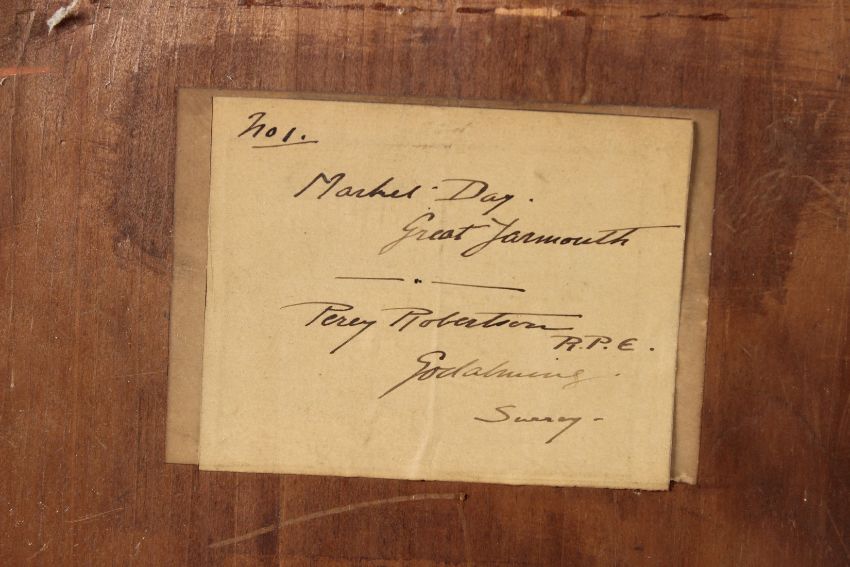 No 1.
Market Day.
Great Yarmouth
Percy Robertson
R.P.E.
Godalming.
Surrey-